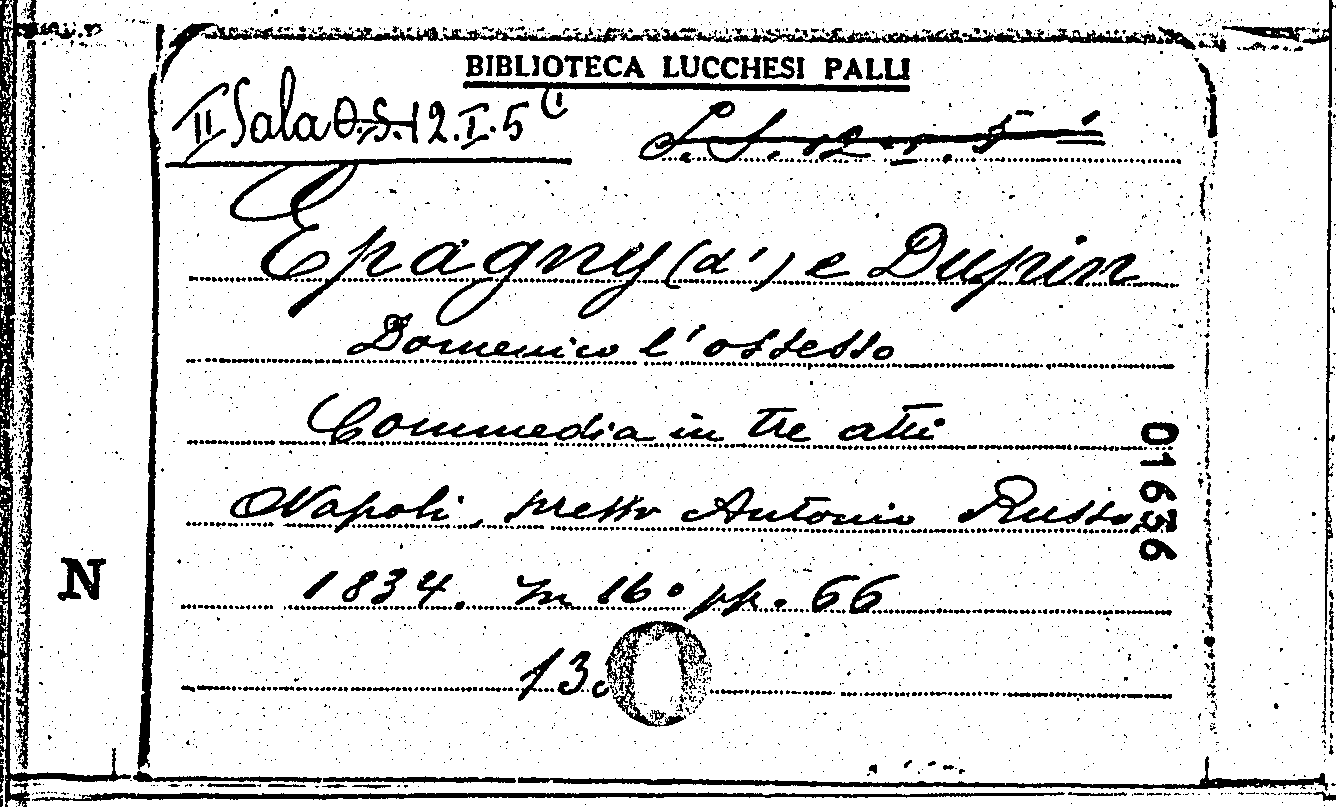 BIBLIOTECA LUCCHESI PALLI
II Sala O.S. 12.I.5(1
S.S. 12.I.5
Epagny (d') e Dupin
Domenico l'ossesso
Commedia in tre atti
Napoli, presso Antonio Russo,
1834. In 16° pp. 66
13
01636
N